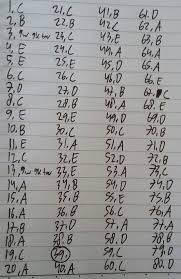 1, C
2, B
3,
4, E
5, E
6, C
7, D
8, C
9, D
10, B
11, E
12, C
13,
14, A
15, A
16, A
17, B
18, A
19, C
20, A
21, C
22, B
23, C
24, C
25, E
26, C
27, D
28, B
29, E
30, C
31, A
32, E
33, E
34, B
35, B
36, B
37, D
38, B
39,
40, A
41, B
42, C
43, E
44, A
45, D
46, D
47, D
48, A
49, C
50, C
51, A
52, D
53, A
54, D
55, E
56, C
57, A
58, D
59, C
60, C
61. D
62, A
63, B
64, A
65, A
66, E
C
68. E
69, C
70, B
71, D
72, B
73, C
74, D
75, B
76, A
77, A
78, B
79, D
80, D